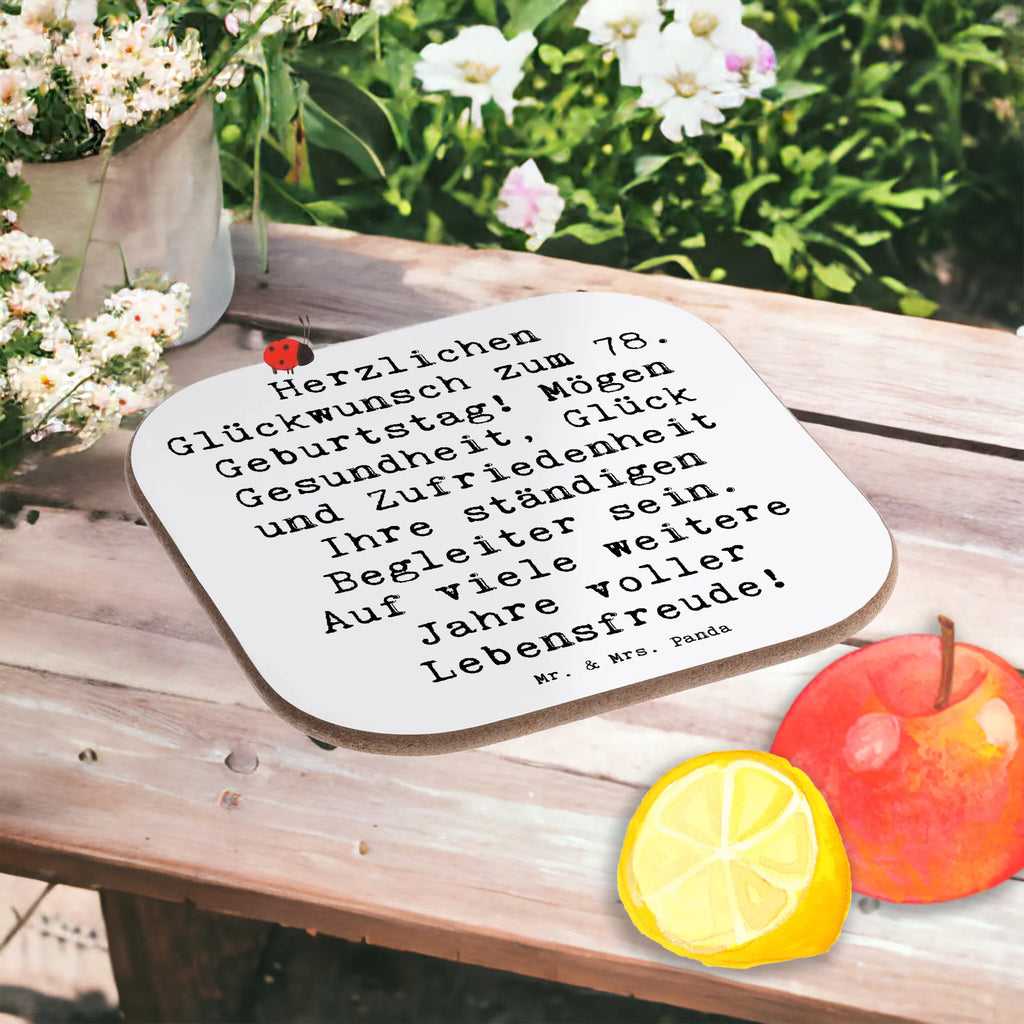 Herzlichen
Glückwunsch zum 78.
Geburtstag! Mögen
Gesundheit, Glück
und Zufriedenheit
Ihre ständigen
Begleiter sein.
Auf viele weitere
Jahre voller
Lebensfreude!
Mr. & Mrs. Panda